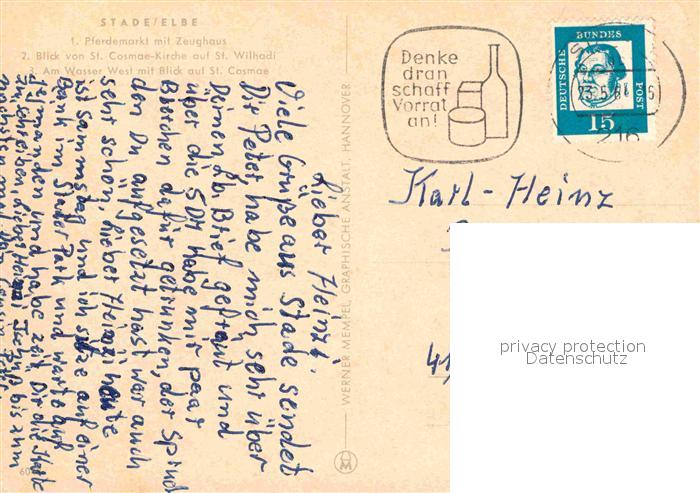 STADE/ELBE
1. Pferdemarkt mit Zeughaus
2. Blick von St. Cosmae-Kirche auf St. Wilhadi
3. Am Wasser West mit Blick auf St. Cosmae
Lieber Heinz!
Viele Grüße aus Stade sendet
Dir Peter, habe mich sehr über
Deinen lb. Brief gefreut und
über die 5DM habe mir paar
Bierchen dafür getrunken, der Spind
den Du aufgesetzt hast war auch
sehr schön, lieber Heinz heute
ist Samstag und ich sitze auf einer
Bank im Stader Park und warte auf
jemanden und habe Zeit Dir die Karte
zu schreiben, liebs Heinzi Tschüß bis zum
nächsten mal Dein
WERNER MEMPEL, GRAPHISCHE ANSTALT, HANNOVER
Denke
dran
schaff
Vorrat
an!
DEUTSCHE
BUNDES
POST
15
216
Karl-Heinz
41
privacy protection
Datenschutz